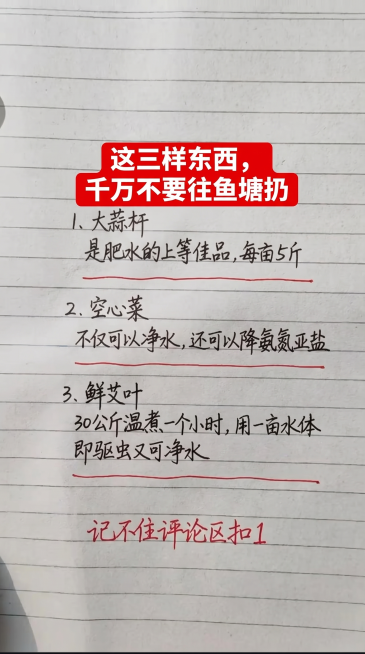 这三样东西，
千万不要往鱼塘扔
1、大蒜杆
是肥水的上等佳品,每亩5斤
2、空心菜
不仅可以净水,还可以降氨氮亚盐
3、鲜艾叶
30公斤温煮一个小时,用一亩水体
即驱虫又可净水
记不住评论区扣1